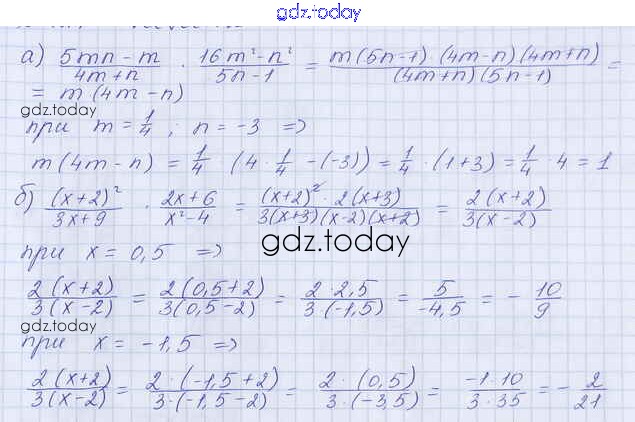 gdz.today
а) (5mn - m)/(4m + n) · (16m² - n²)/(5n - 1) = (m(5n-1) (4m-n)(4m+n))/((4m+n)(5n-1)) =
= m (4m - n)
gdz.today
при m = 1/4 ; n = -3 =>
m(4m - n) = 1/4 · (4 · 1/4 - (-3)) = 1/4 · (1+3) = 1/4 · 4 = 1
б) (x+2)²/(3x+9) · (2x+6)/(x²-4) = ((x+2)² · 2(x+3))/(3(x+3)(x-2)(x+2)) = (2(x+2))/(3(x-2))
gdz.today
при x = 0,5 =>
(2(x+2))/(3(x-2)) = (2(0,5+2))/(3(0,5-2)) = (2 · 2,5)/(3·(-1,5)) = 5/(-4,5) = - 10/9
gdz.today
при x = -1,5 =>
(2(x+2))/(3(x-2)) = (2·(-1,5+2))/(3·(-1,5-2)) = (2·(0,5))/(3·(-3,5)) = (-1·10)/(3·35) = - 2/21